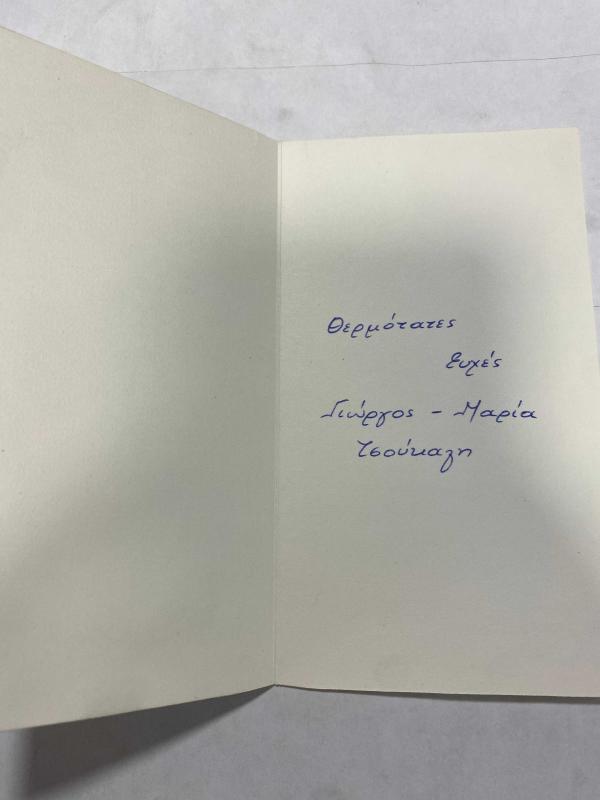 Θερμότατες
Ευχές
Γιώργος - Μαρία